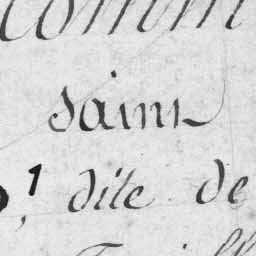 comm
saint
1 dite de